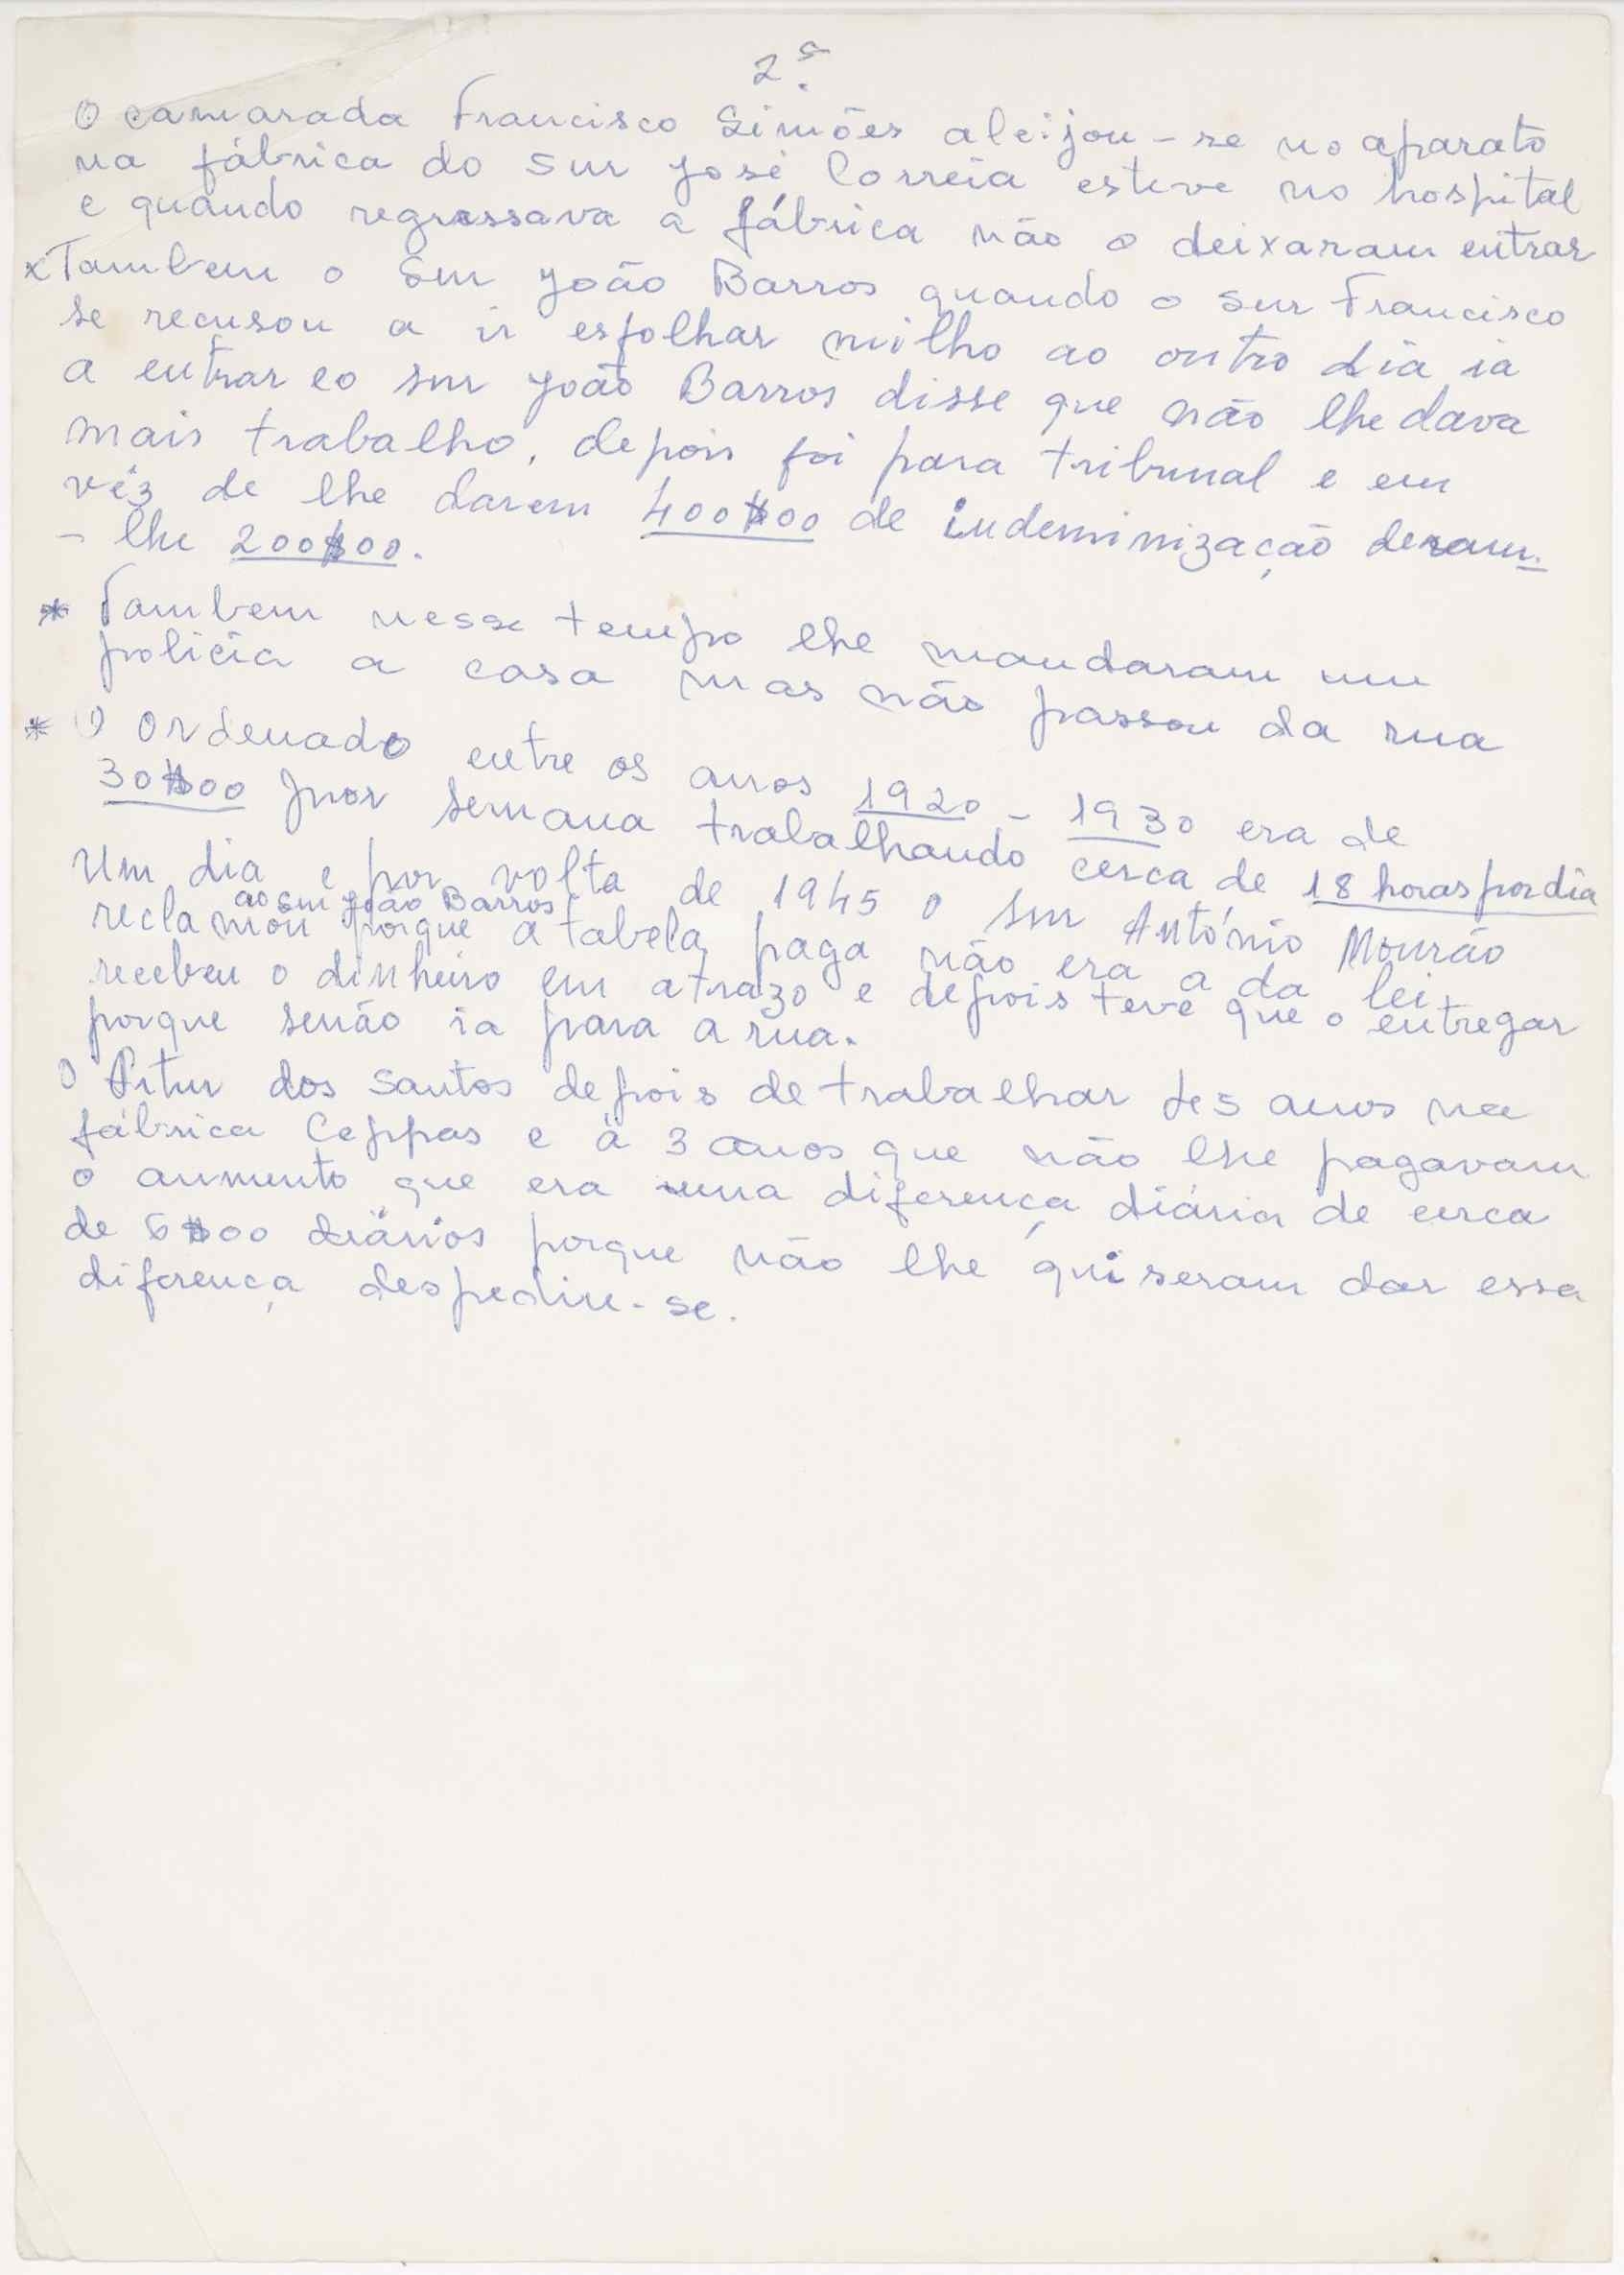 2ª.
O camarada Francisco Simões aleijou-se no aparato
na fábrica do Snr José Correia esteve no hospital
e quando regressava a fábrica não o deixaram entrar
x Tambem o Snr João Barros quando o snr Francisco
se recusou a ir esfolhar milho ao outro dia ia
a entrar eo snr João Barros disse que não lhe dava
mais trabalho, depois foi para tribunal e em
véz de lhe darem 400$00 de indeminização deram-
- lhe 200$00.
* Tambem nesse tempo lhe mandaram um
policia a casa mas não passou da rua
* O Ordenado entre os anos 1920 - 1930 era de
30$00 por semana trabalhando cerca de 18 horas por dia
Um dia e por volta de 1945 o snr António Mourão
ao snr João Barros
reclamou porque a tabela paga não era a da lei
recebeu o dinheiro em atrazo e depois teve que o entregar
porque senão ia para a rua.
O Artur dos Santos depois de trabalhar 25 anos na
fábrica Ceppas e à 3 anos que não lhe pagavam
o aumento que era uma diferença diária de cerca
de 6$00 diários porque não lhe quiseram dar essa
diferença despediu-se.